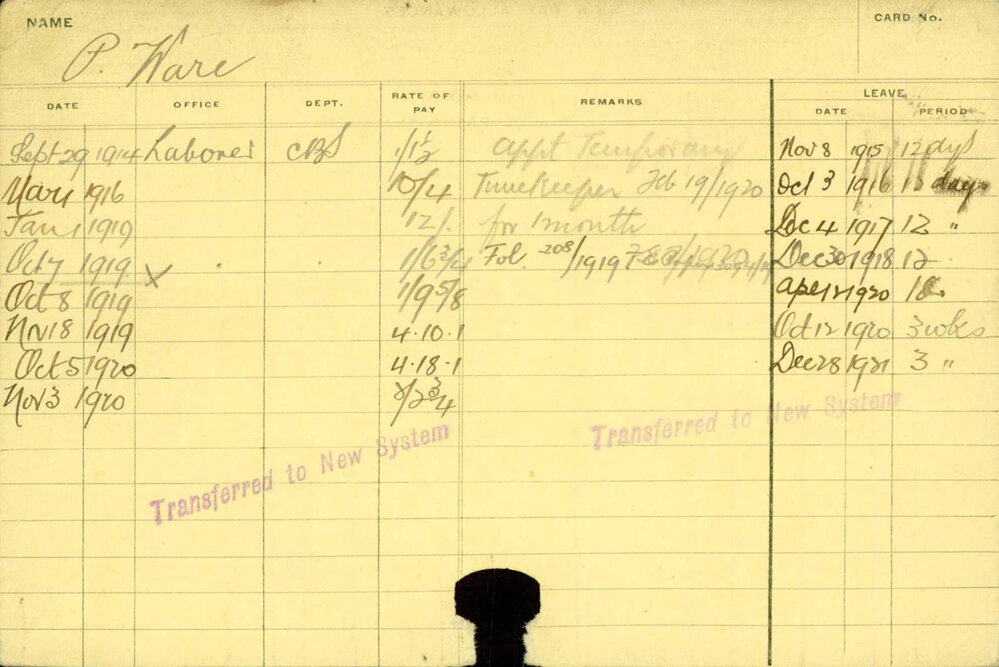 NAME
CARD No.
P. Ware
DATE OFFICE DEPT. RATE OF PAY REMARKS LEAVE
DATE PERIOD
Sept 29 1914 Laborer CBS 1/1½ appt Temporary Nov 8 1915 12 dys
1916 10/4 Timekeeper Feb 19/1920 Oct 3 1916 days
Jan 1 1919 12/. for 1 month Dec 4 1917 12 "
Oct 7 1919 x 1/6¾ Fol. 208/1919 Dec 30 1918 12
Oct 8 1919 1/9⅝ 1920
Nov 18 1919 4.10.1 Oct 12 1920 3 wks
Oct 5 1920 4.18.1 Dec 28 1921 3 "
Nov 3 1920 2/2¾
Transferred to New System
Transferred to New System